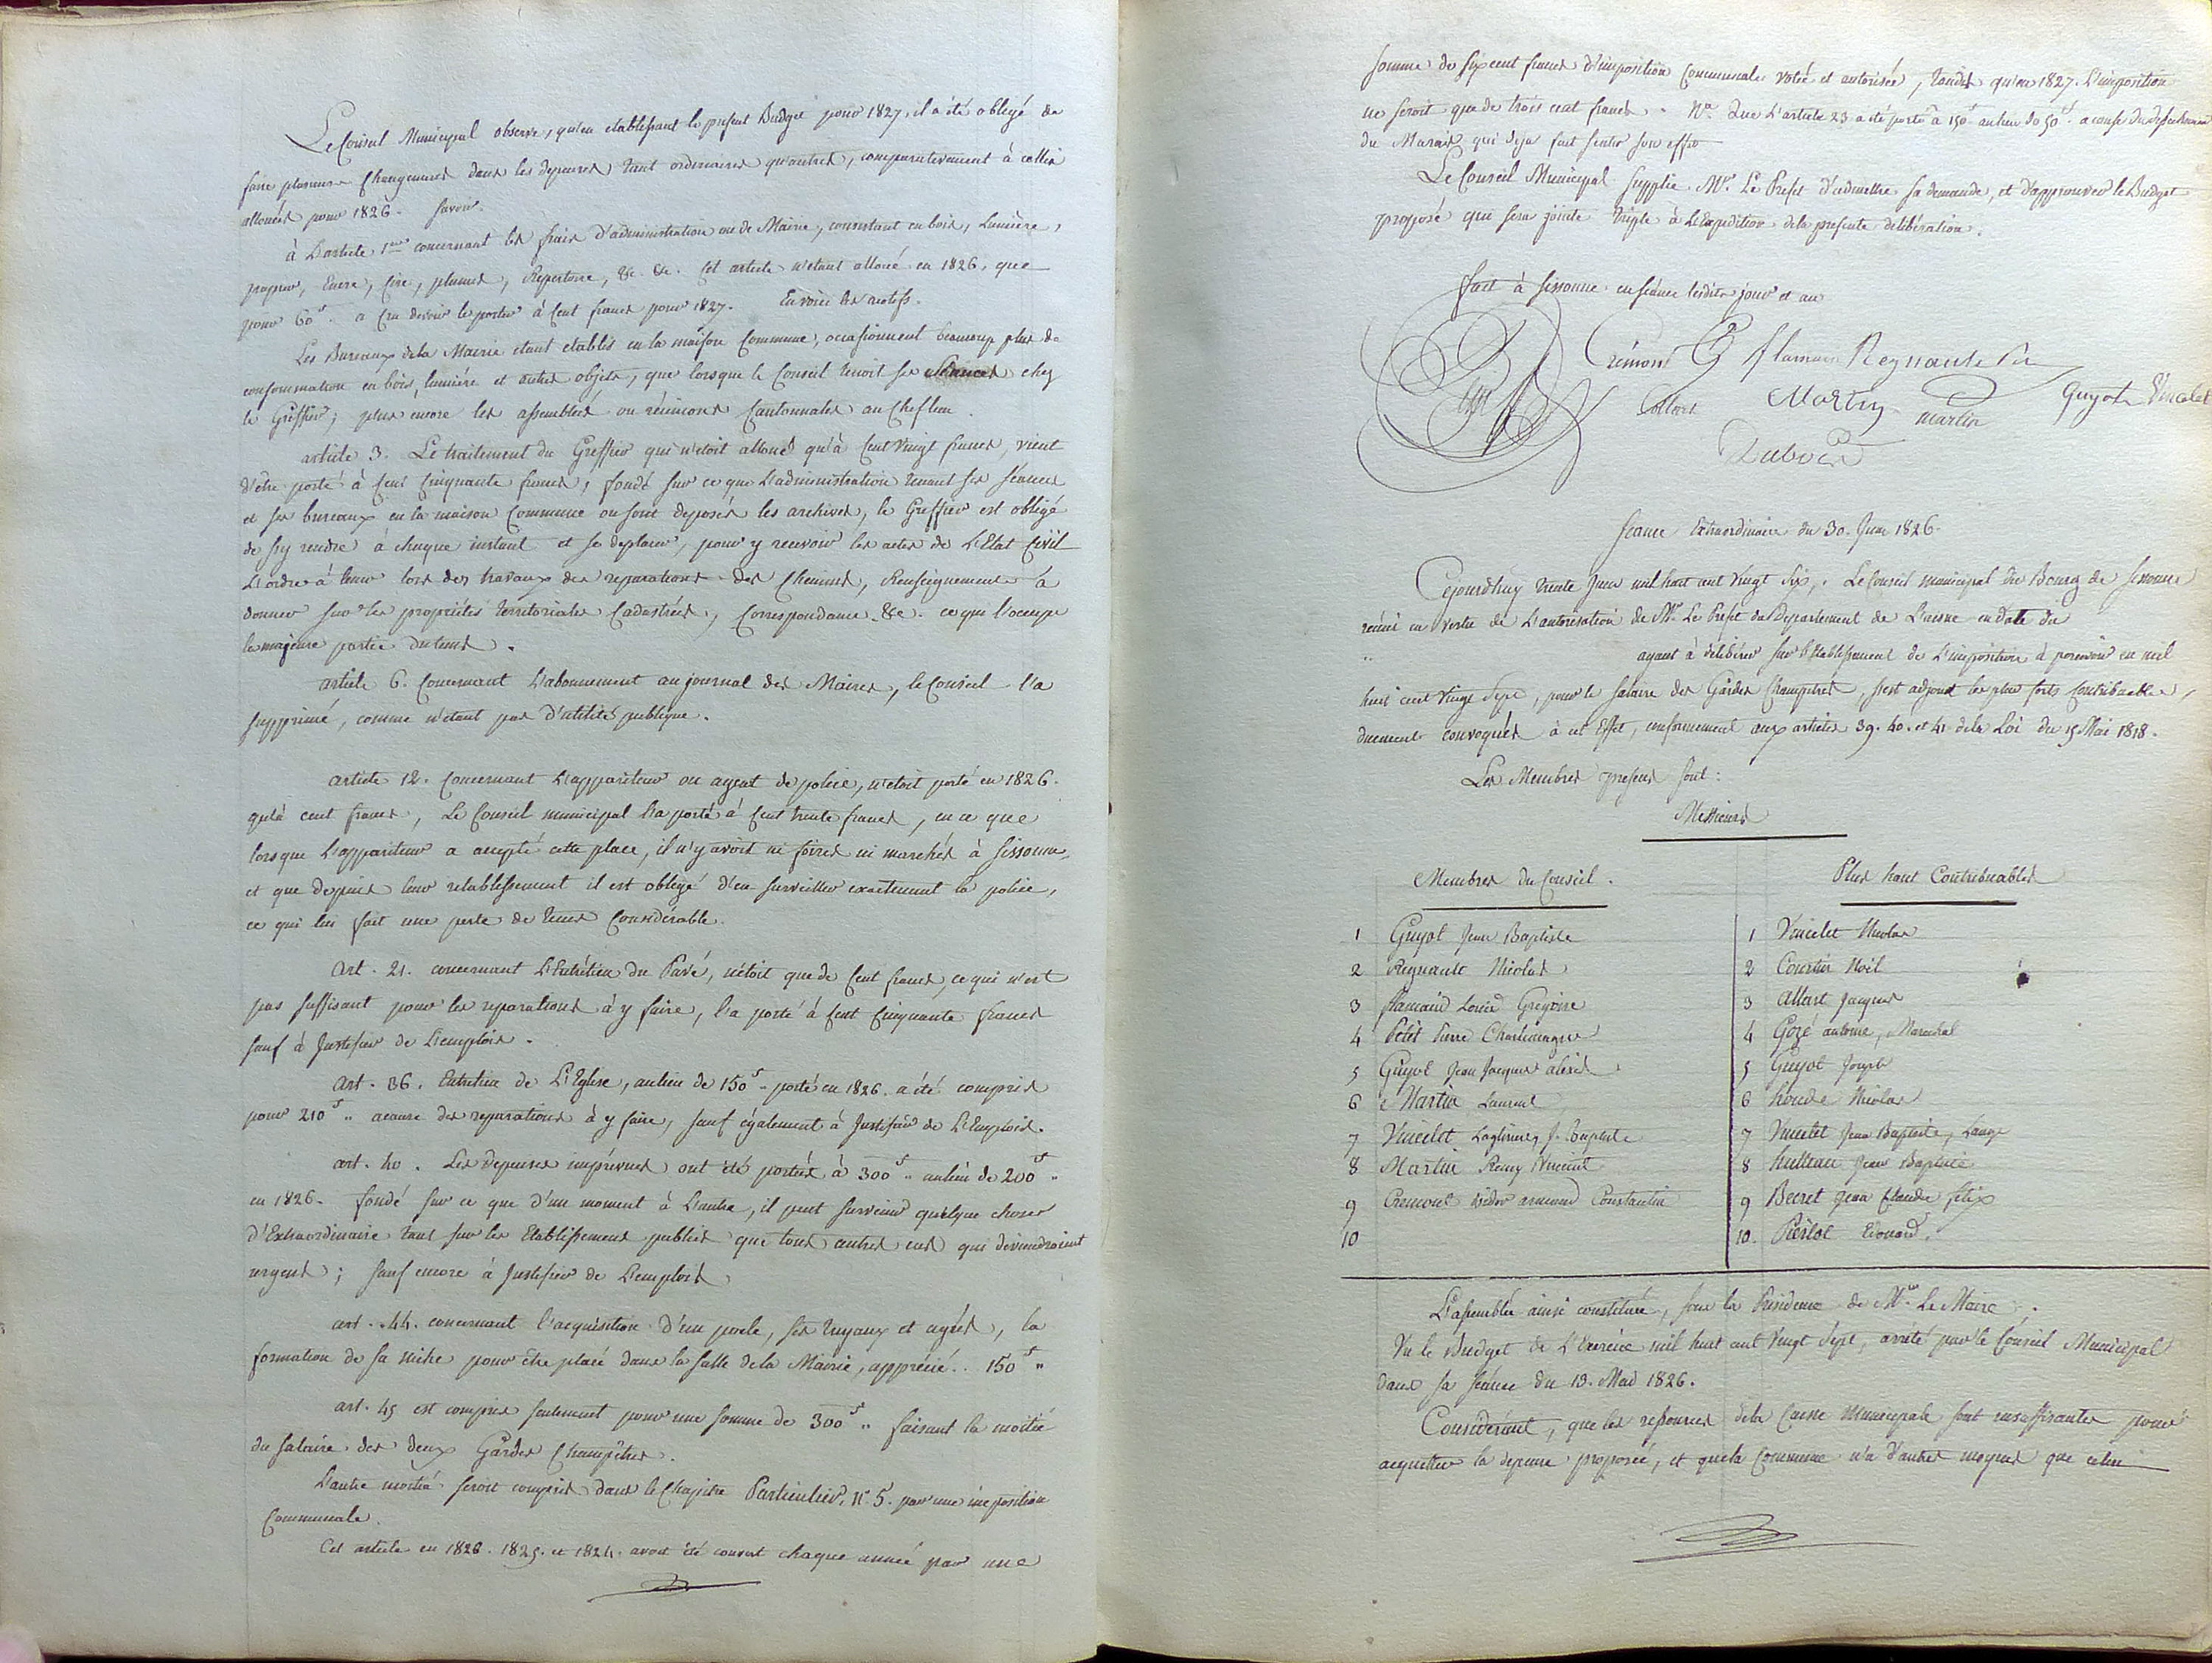 Le Conseil Municipal observe, qu'en etablissant le present Budget pour 1827, il a été obligé de
faire plusieurs Changemens dans les depenses tant ordinaires qu'autres, comparativement à celles
allouées pour 1826. Savoir.
à L'article 1er concernant les frais d'administration ou de Mairie, consistant en bois, Lumière,
papier, Encre, Cire, plumes, Répertoire, &c. &c. Cet article n'étant alloué en 1826, que
pour 60f. a cru devoir le porter à Cent francs pour 1827. En voici les motifs.
Les Bureaux de la Mairie etant etablis en la maison Commune, occasionnent beaucoup plus de
consommation en bois, lumière et autres objets, que lorsque le Conseil tenoit ses Séances chez
le Greffier; plus encore les assemblées ou réunions Cantonnales au Chef lieu.
article 3. Le traitement du Greffier qui n'etoit alloué qu'à Cent vingt francs, vient
d'être porté à Cent Cinquante francs, fondé sur ce que L'administration tenant ses séances
et ses bureaux en la maison Commune ou sont deposés les archives, le Greffier est obligé
de s'y rendre à chaque instant et se deplacer, pour y recevoir les actes de L'Etat Civil
L'ordre à tenir lors des travaux des reparations des Chemins, Renseignements à
donner sur les propriétés territoriales Cadastrées, Correspondance &c. ce qui l'occupe
la majeure partie du tems.
article 6. Concernant L'abonnement au journal des Maires, le Conseil l'a
supprimé, comme n'étant pas d'utilité publique.
article 12. Concernant L'appariteur ou agent de police, n'étoit porté en 1826.
qu'à cent francs, Le Conseil municipal l'a porté à Cent trente francs, en ce que
lorsque L'appariteur a accepté cette place, il n'y avoit ni foires ni marchés à Sissonne,
et que depuis leur retablissement il est obligé d'en surveiller exactement la police,
ce qui lui fait une perte de tems Considérable.
Art. 21. concernant L'Entrétien du Pavé, n'étoit que de Cent francs, ce qui n'est
pas suffisant pour les reparations à y faire, l'a porté à Cent Cinquante francs
sauf à Justifier de L'emploi.
Art. 36. Entretien de L'Eglise, au lieu de 150f porté en 1826. a été compris
pour 210f " acause des reparations à y faire, sauf également à Justifier de L'Emploi.
art. 40. Les depenses imprévues ont été portées à 300f " au lieu de 200f "
en 1826. fondé sur ce que d'un moment à L'autre, il peut survenir quelque choses
d'Extraordinaire tant sur les Etablissemens publics que tous autres cas qui deviendroient
urgens; sauf encore à Justifier de L'emploi.
art. 44. concernant l'acquisition d'un poele, ses tuyaux et agrés, la
formation de sa niche pour être placé dans la salle de la Mairie, apprécié.. 150f "
art. 45 est compris seulement pour une somme de 300f " faisant la moitié
du salaire des deux Gardes Champêtres.
L'autre moitié seroit compris dans le Chapitre Particulier, n° 5. par une imposition
Communale.
Cet article en 1826. 1825. et 1824. avoit été couvert chaque année par une
somme de six cent francs d'imposition Communale votée et autorisée, tandis qu'en 1827. L'imposition
ne seroit que de trois cent francs. Na. Que L'article 23 a été porté à 150f au lieu de 50f. a cause du dessechement
du Marais qui deja fait sentir son effet
Le Conseil Municipal supplie Mr. Le Prefet d'admettre sa demande, et d'approuver le Budget
proposé qui sera jointe triple à L'Expedition de la presente délibération.
fait à Sissonne en séance lesdits jour et an
Crémont flamain Regnault
Petit Allart Martin martin Guyot Vincelet
Dubois
Seance Extraordinaire du 30. Juin 1826.
Cejourd'huy trente Juin mil huit cent vingt Six, Le Conseil municipal du Bourg de Sissonne
réuni en vertu de L'autorisation de Mr. Le Prefet du Departement de L'aisne en date du
ayant à délibérer sur l'Etablissement de L'imposition à percevoir en mil
huit cent vingt Sept, pour le salaire des Gardes Champêtres, s'est adjoint les plus forts Contribuables,
duement convoqués à cet Effet, conformement aux articles 39. 40. et 41 de la Loi du 15 Mai 1818.
Les Membres presens sont:
Messieurs
Membres du Conseil.
1 Guyot Jean Baptiste
2 Regnault Nicolas
3 flamain Louis Grégoire
4 Petit Pierre Charlemagne
5 Guyot Jean Jacques alexis
6 Martin Laurent
7 Vincelet J. Baptiste
8 Martin Remy Vincent
9 Cremont isidor armand Constantin
10
Plus haut Contribuables
1 Vincelet Nicolas
2 Courtin Noël
3 Allart Jacques
4 Gozé antoine, Marechal
5 Guyot Joseph
6 houde Nicolas
7 Vincelet Jean Baptiste, Lange
8 hulleau Jean Baptiste
9 Becret Jean Claude felix
10. Pierlot Edouard.
L'assemblée ainsi constituée, sous la Présidence de Mr. Le Maire.
Vu le Budget de L'Exercice mil huit cent vingt Sept, arrêté par le Conseil Municipal
dans sa séance du 13. Mai 1826.
Considérant, que les ressources de la Caisse Municipale sont insuffisantes pour
acquitter la depense proposée, et que la Commune n'a d'autres moyens que celui